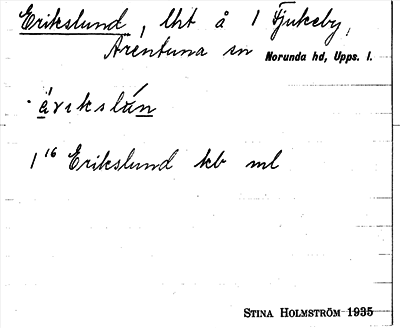 Erikslund, lht å 1 Fjukeby,
Ärentuna sn Norunda hd, Upps. l.
ä́rıkslán
1¹⁶ Erikslund kb ml
STINA HOLMSTRÖM 1935